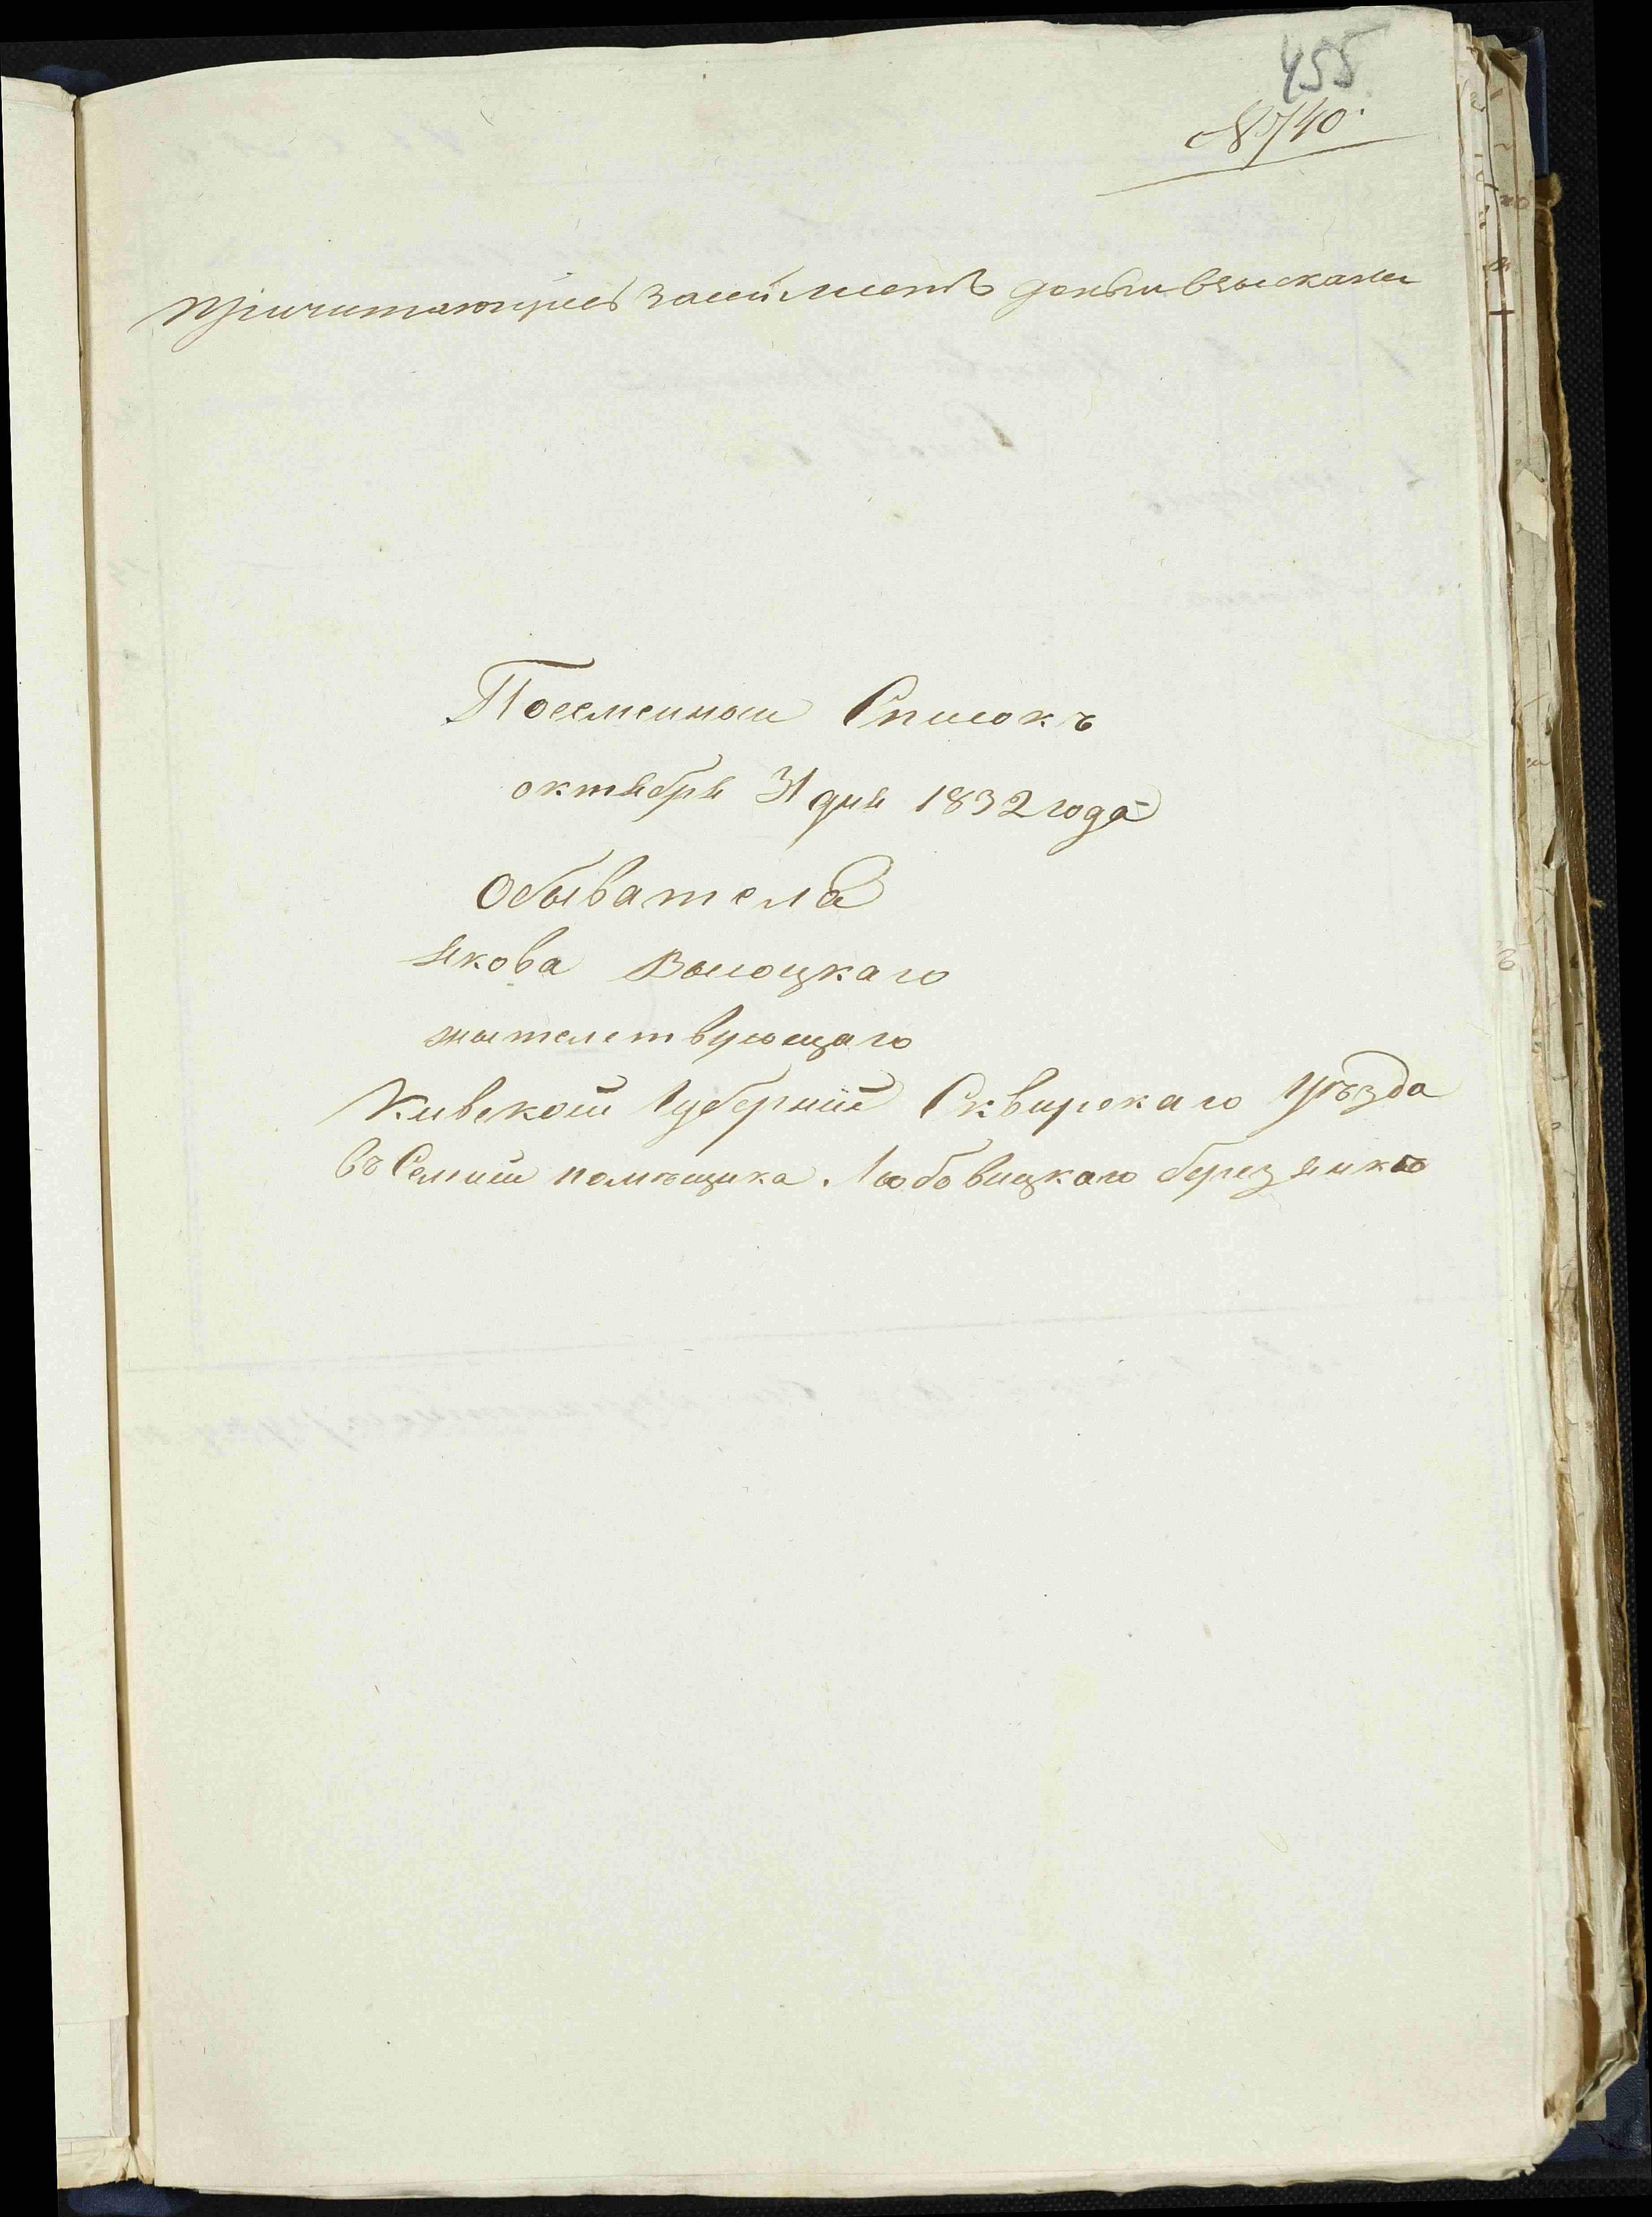 455
№ 140.
причитающиеся за сей листъ деньги взысканы
Посемейной Списокъ
октября 31 дня 1832 года
Обывателя
Якова Высоцкаго
жителствующаго
Киевской Губернии Сквирскаго Уѣзда
въ Селении помѣщика Любовицкаго березянкѣ